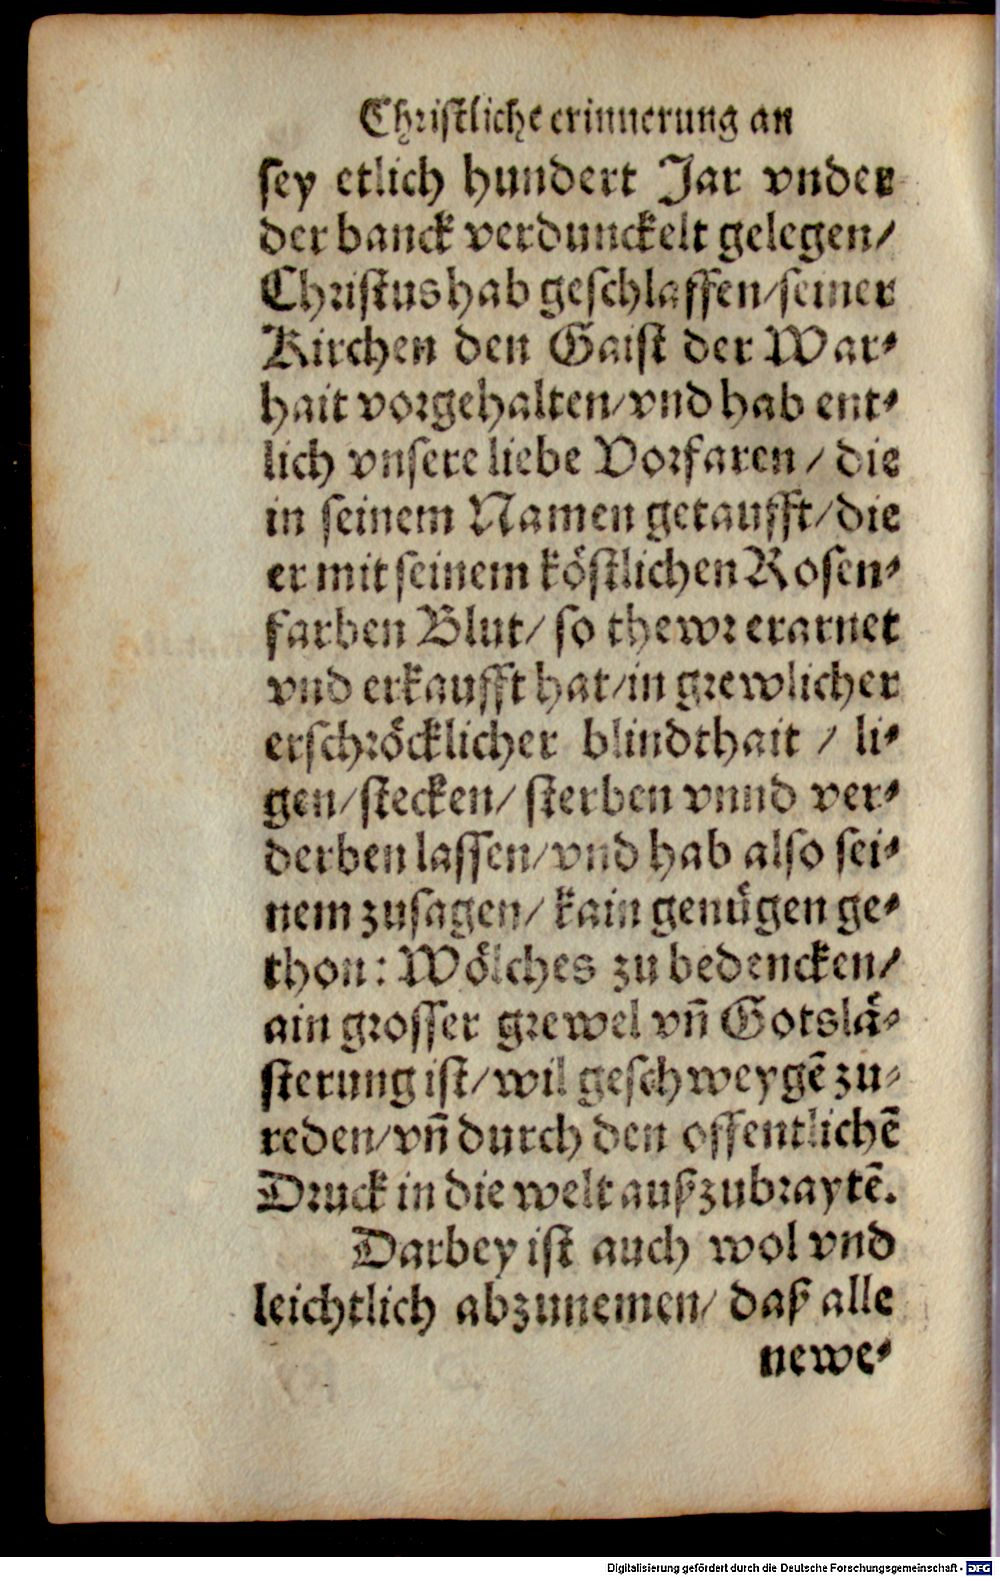 Christliche erinnerung an
sey etlich hundert Jar vnder
der banck verdunckelt gelegen/
Christus hab geschlaffen/seiner
Kirchen den Gaist der War⸗
hait vorgehalten/vnd hab ent⸗
lich vnsere liebe Vorfaren / die
in seinem Namen getaufft/die
er mit seinem köstlichen Rosen⸗
farben Blut/ so thewr erarnet
vnd erkaufft hat/in grewlicher
erschröcklicher blindthait / li⸗
gen/stecken/ sterben vnnd ver⸗
derben lassen/vnd hab also sei⸗
nem zusagen/ kain genuͤgen ge⸗
thon: Woͤlches zu bedencken/
ain grosser grewel vñ Gotslaͤ⸗
sterung ist/wil geschweygẽ zu⸗
reden/vñ durch den offentlichẽ
Druck in die welt außzubraytẽ.
Darbey ist auch wol vnd
leichtlich abzunemen/ daß alle
newe⸗
Digitalisierung gefördert durch die Deutsche Forschungsgemeinschaft - DFG